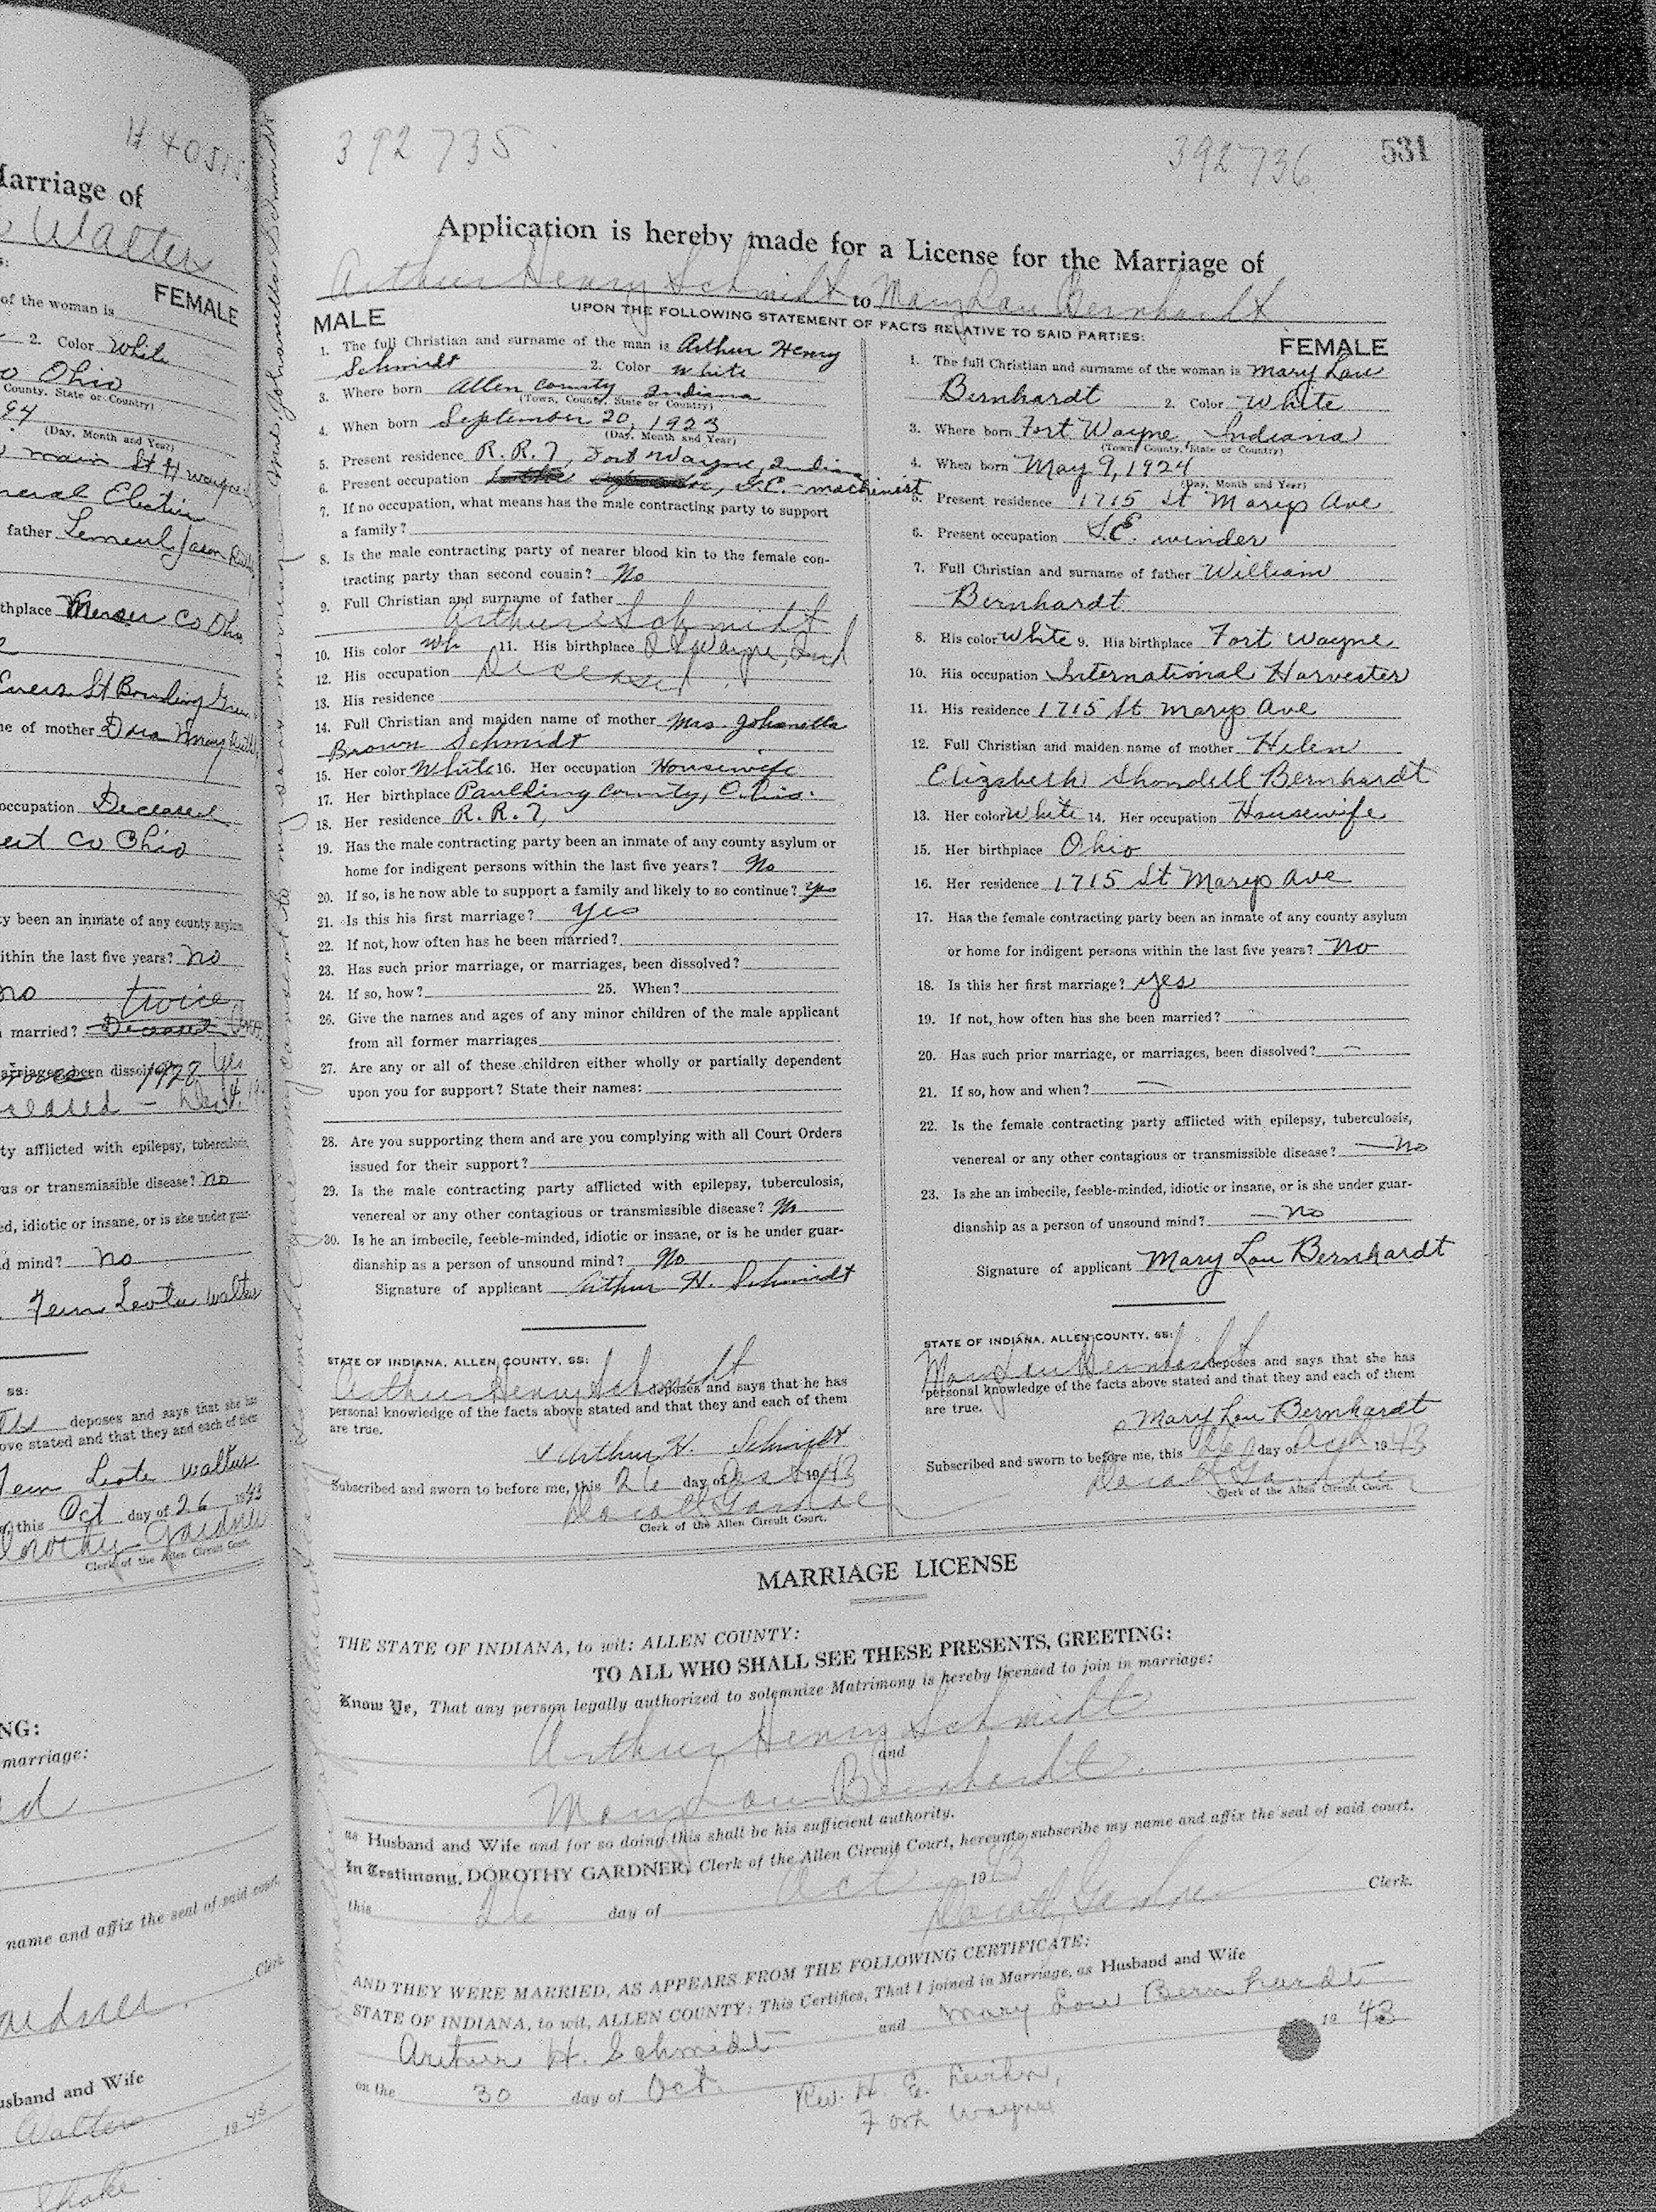 H 40515
Marriage of
Walter
FEMALE
of the woman is
2. Color White
Ohio
County, State or Country)
94
(Day, Month and Year)
main St Ft Wayne
neral Electric
father Lemuel Jason
thplace Mercer Co Ohio
St Bowling Green
ne of mother Dora May
occupation Deceased
ert Co Ohio
ty been an inmate of any county asylum
ithin the last five years? no
no twice
married? Deceased
arriages been dissolved 1928 yes
ceased - Dec
ty afflicted with epilepsy, tuberculosis,
us or transmissible disease? no
ed, idiotic or insane, or is she under guar-
d mind? no
Fern Leota Walter
ss:
deposes and says that she has
ove stated and that they and each of them
Fern Leota Walter
this Oct day of 26 1943
Dorothy Gardner
Clerk of the Allen Circuit Court.
NG:
marriage:
name and affix the seal of said court.
Clerk
ardner.
usband and Wife
Walter
19 43
392735
392736
531
Application is hereby made for a License for the Marriage of
Arthur Henry Schmidt to Mary Lou Bernhardt
UPON THE FOLLOWING STATEMENT OF FACTS RELATIVE TO SAID PARTIES:
MALE
1. The full Christian and surname of the man is Arthur Henry
Schmidt 2. Color White
3. Where born Allen County Indiana
(Town, County, State or Country)
4. When born September 20, 1923
(Day, Month and Year)
5. Present residence R. R. 7, Fort Wayne, Indiana
6. Present occupation G.E. - machinest
7. If no occupation, what means has the male contracting party to support
a family?
8. Is the male contracting party of nearer blood kin to the female con-
tracting party than second cousin? No
9. Full Christian and surname of father
Arthur Schmidt
10. His color Wh 11. His birthplace Ft Wayne, Ind
12. His occupation Deceased
13. His residence
14. Full Christian and maiden name of mother Mrs. Johanetta
Brown Schmidt
15. Her color White 16. Her occupation Housewife
17. Her birthplace Paulding County, Ohio.
18. Her residence R. R. 7,
19. Has the male contracting party been an inmate of any county asylum or
home for indigent persons within the last five years? No
20. If so, is he now able to support a family and likely to so continue? Yes
21. Is this his first marriage? Yes
22. If not, how often has he been married?
23. Has such prior marriage, or marriages, been dissolved?
24. If so, how? 25. When?
26. Give the names and ages of any minor children of the male applicant
from all former marriages
27. Are any or all of these children either wholly or partially dependent
upon you for support? State their names:
28. Are you supporting them and are you complying with all Court Orders
issued for their support?
29. Is the male contracting party afflicted with epilepsy, tuberculosis,
venereal or any other contagious or transmissible disease? No
30. Is he an imbecile, feeble-minded, idiotic or insane, or is he under guar-
dianship as a person of unsound mind? No
Signature of applicant Arthur H. Schmidt
STATE OF INDIANA, ALLEN COUNTY, SS:
Arthur Henry Schmidt deposes and says that he has
personal knowledge of the facts above stated and that they and each of them
are true.
x Arthur H. Schmidt
Subscribed and sworn to before me, this 26 day of Oct 1943
Dorothy Gardner
Clerk of the Allen Circuit Court.
FEMALE
1. The full Christian and surname of the woman is Mary Lou
Bernhardt 2. Color White
3. Where born Fort Wayne, Indiana
(Town, County, State or Country)
4. When born May 9, 1924
(Day, Month and Year)
5. Present residence 1715 St Marys Ave
6. Present occupation G.E. winder
7. Full Christian and surname of father William
Bernhardt
8. His color White 9. His birthplace Fort Wayne
10. His occupation International Harvester
11. His residence 1715 St Marys Ave
12. Full Christian and maiden name of mother Helen
Elizabeth Shondell Bernhardt
13. Her color White 14. Her occupation Housewife
15. Her birthplace Ohio
16. Her residence 1715 St Marys Ave
17. Has the female contracting party been an inmate of any county asylum
or home for indigent persons within the last five years? No
18. Is this her first marriage? yes
19. If not, how often has she been married?
20. Has such prior marriage, or marriages, been dissolved? —
21. If so, how and when? —
22. Is the female contracting party afflicted with epilepsy, tuberculosis,
venereal or any other contagious or transmissible disease? — No
23. Is she an imbecile, feeble-minded, idiotic or insane, or is she under guar-
dianship as a person of unsound mind? — No
Signature of applicant Mary Lou Bernhardt
STATE OF INDIANA, ALLEN COUNTY, SS:
Mary Lou Bernhardt deposes and says that she has
personal knowledge of the facts above stated and that they and each of them
are true.
Mary Lou Bernhardt
Subscribed and sworn to before me, this 26 day of Oct 1943
Dorothy Gardner
Clerk of the Allen Circuit Court.
MARRIAGE LICENSE
THE STATE OF INDIANA, to wit: ALLEN COUNTY:
TO ALL WHO SHALL SEE THESE PRESENTS, GREETING:
Know Ye, That any person legally authorized to solemnize Matrimony is hereby licensed to join in marriage:
Arthur Henry Schmidt
and
Mary Lou Bernhardt
as Husband and Wife and for so doing this shall be his sufficient authority.
In Testimony, DOROTHY GARDNER, Clerk of the Allen Circuit Court, hereunto subscribe my name and affix the seal of said court,
this 26 day of Oct 1943
Dorothy Gardner Clerk.
AND THEY WERE MARRIED, AS APPEARS FROM THE FOLLOWING CERTIFICATE:
STATE OF INDIANA, to wit, ALLEN COUNTY: This Certifies, That I joined in Marriage, as Husband and Wife
Arthur H. Schmidt and Mary Lou Bernhardt
on the 30 day of Oct. 19 43
Rev. H. E.
Fort Wayne